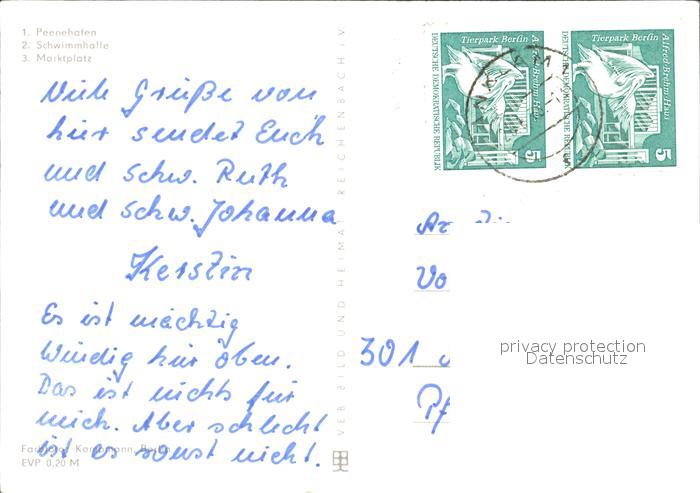 1. Peenehafen
2. Schwimmhalle
3. Marktplatz
Viele Grüße von
hier sendet Euch
und Schw. Ruth
und Schw. Johanna
Kerstin
Es ist mächtig
Windig hier oben.
Das ist nichts für
mich. Aber schlecht
ist es sonst nicht.
Farbfoto: Kampmann, Berlin
EVP 0,20 M
VEB BILD UND HEIMAT REICHENBACH i V
Tierpark Berlin
Alfred-Brehm-Haus
DEUTSCHE DEMOKRATISCHE REPUBLIK
5
Tierpark Berlin
Alfred-Brehm-Haus
DEUTSCHE DEMOKRATISCHE REPUBLIK
5
ANKLAM
Vo
301
Pf
privacy protection
Datenschutz